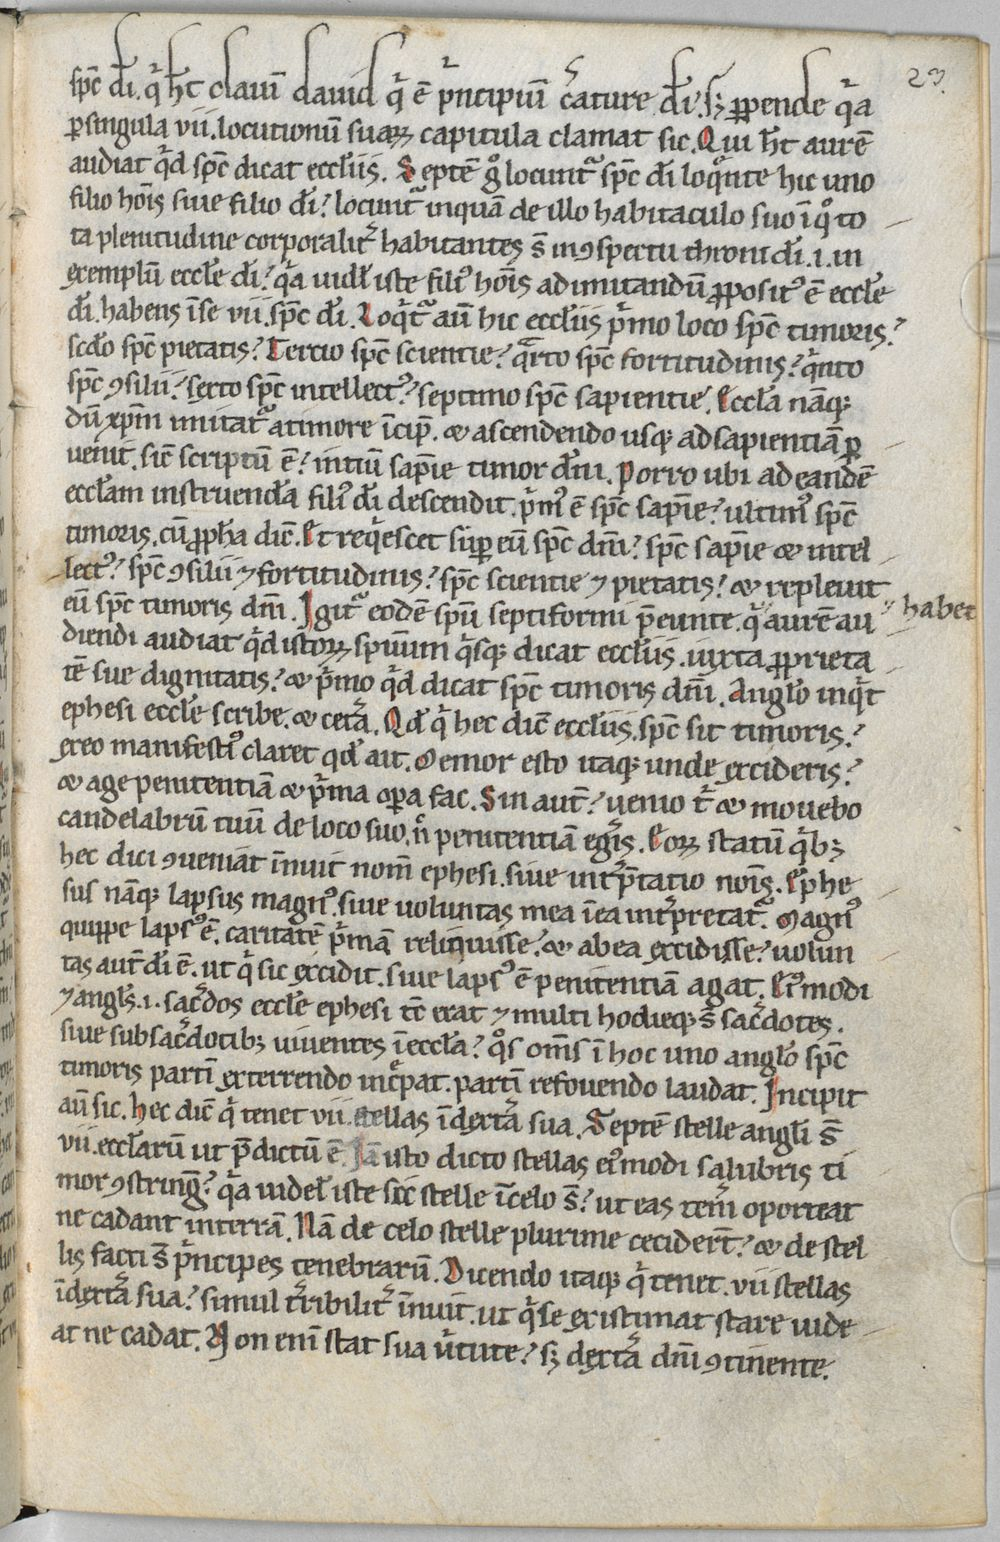 23.
spc̄ dī. q̇ ht̄ clauū dauid q̇ ē ṗncipiū c̄ature dī. sꝫ ꝑpende q̇a
ꝑ singula vii. locutionū suaꝝ capitula clamat sic. Qui ht̄ aurē
audiat q̇d spc̄ dicat eccłiis. Septē g̊ locunt᷑ spc̄ dī loq̇nte hic uno
filio hōis siue filio dī? locunt᷑ inquā de illo habitaculo suo ī q̊ to
ta plenitudine corporalit᷑ habitantes s̄ in ꝯspectu throni dī .i. in
exemplū eccłe dī? q̇a uidł iste filiꝰ hōis ad imitandū ꝓpositꝰ ē eccłe
dī. habens īse vii. spc̄ dī. Loq̇t᷑ aū hic eccłiis ṗmo loco spc̄ timoris?
scd̄o spc̄ pietatis? Tercio spc̄ scientie? q̇rto spc̄ fortitudinis? q̇nto
spc̄ ꝯsilii? sexto spc̄ intellectꝰ? septimo spc̄ sapientie. Eccła nāqꝫ
dū xp̄m imitat᷑ a timore īcip̄. & ascendendo usqꝫ ad sapientiā ꝑ
uenit. sic̄ scriptū ē? initiū sapīe timor dn̄i. Porro ubi ad eandē
eccłam instruendā filiꝰ dī descendit. ṗmꝰ ē spc̄ sapīe? ultimꝰ spc̄
timoris. cū ꝓph̄a dic̄. Et req̇escet suꝑ eū spc̄ dn̄i? spc̄ sapīe & intel
lectꝰ? spc̄ ꝯsilii ⁊ fortitudinis? spc̄ scientie ⁊ pietatis? & repleuit
eū spc̄ timoris dn̄i. Igit᷑ eodē spū septiformi p̄eunte. q̇ aurē au
habet
diendi audiat q̇d istoꝝ spirituum q̇sqꝫ dicat eccłiis. iuxta ꝓprieta
tē sue dignitatis? & ṗmo q̇d dicat spc̄ timoris dn̄i. Angło inq̇t
ephesi eccłe scribe. & cet᷑a. Qd̄ q̇ hec dic̄ eccłiis. spc̄ sit timoris?
ex eo manifestꝰ claret qd̄ ait. Memor esto itaqꝫ unde excideris?
& age penitentiā & ṗma oꝑa fac. Sin aut̄? uenio t̄ & mouebo
candelabrū tuū de loco suo. n̄ penitentiā eḡis. Eoꝝ statū q̇bꝫ
hec dici ꝯueniāt īnuit nom̄ ephesi. siue int᷑p̄tatio nōis. Ephe
sus nāqꝫ lapsus magnꝰ. siue uoluntas mea īea int᷑pretat᷑. Magnꝰ
quippe lapsꝰ ē. caritatē ṗmā reliquisse? & ab ea excidisse? uolun
tas aut̄ dī ē. ut q̇ sic excidit. siue lapsꝰ ē penitentiā agat. Eiꝰmodi
⁊ angłs .i. sac᷑dos eccłe ephesi tc̄ erat ⁊ multi hodieqꝫ s̄ sac᷑dotes.
siue sub sac᷑dotibꝫ uiuentes ī eccła? q̊s om̄s ī hoc uno angło spc̄
timoris partī exterrendo inc᷑pat. partī refouendo laudat. Incipit
aū sic. hec dic̄ q̇ tenet vii. stellas ī dext᷑a sua. Septē stelle angłi s̄
vii. eccłarū ut p̄dictū ē. Iā isto dicto stellas eiꝰmodi salubris ti
mor ꝯstring̅? q̇a uideł iste sic̄ stelle ī celo s̄? ut eas tem̄i oporteat
ne cadant in terrā. Nā de celo stelle plurime cecider̄t? & de stel
lis facti s̄ ṗncipes tenebrarū. Dicendo itaqꝫ q̇ tenet. vii stellas
ī dext᷑a sua? simul t᷑ribilit᷑ īnuit. ut q̇ se existimat stare uide
at ne cadat. Non enī stat sua u᷑tute? sꝫ dext᷑a dn̄i ꝯtinente.